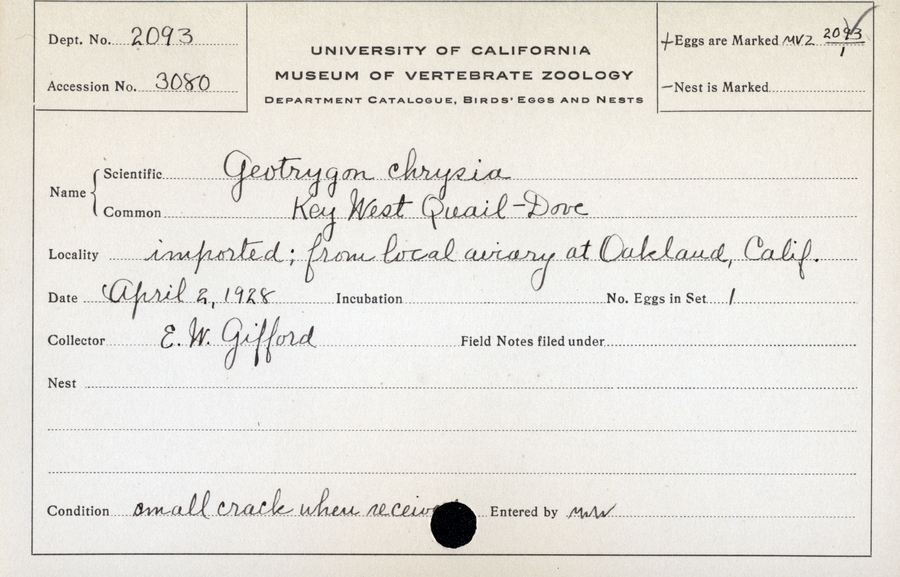 Dept. No. 2093
Accession No. 3080
UNIVERSITY OF CALIFORNIA
MUSEUM OF VERTEBRATE ZOOLOGY
DEPARTMENT CATALOGUE, BIRDS' EGGS AND NESTS
+Eggs are Marked MVZ 2093/1
—Nest is Marked
Name { Scientific Geotrygon chrysia
Common Key West Quail-Dove
Locality imported; from local aviary at Oakland, Calif.
Date April 2, 1928 Incubation No. Eggs in Set 1
Collector E. W. Gifford Field Notes filed under
Nest
Condition small crack when receiv Entered by